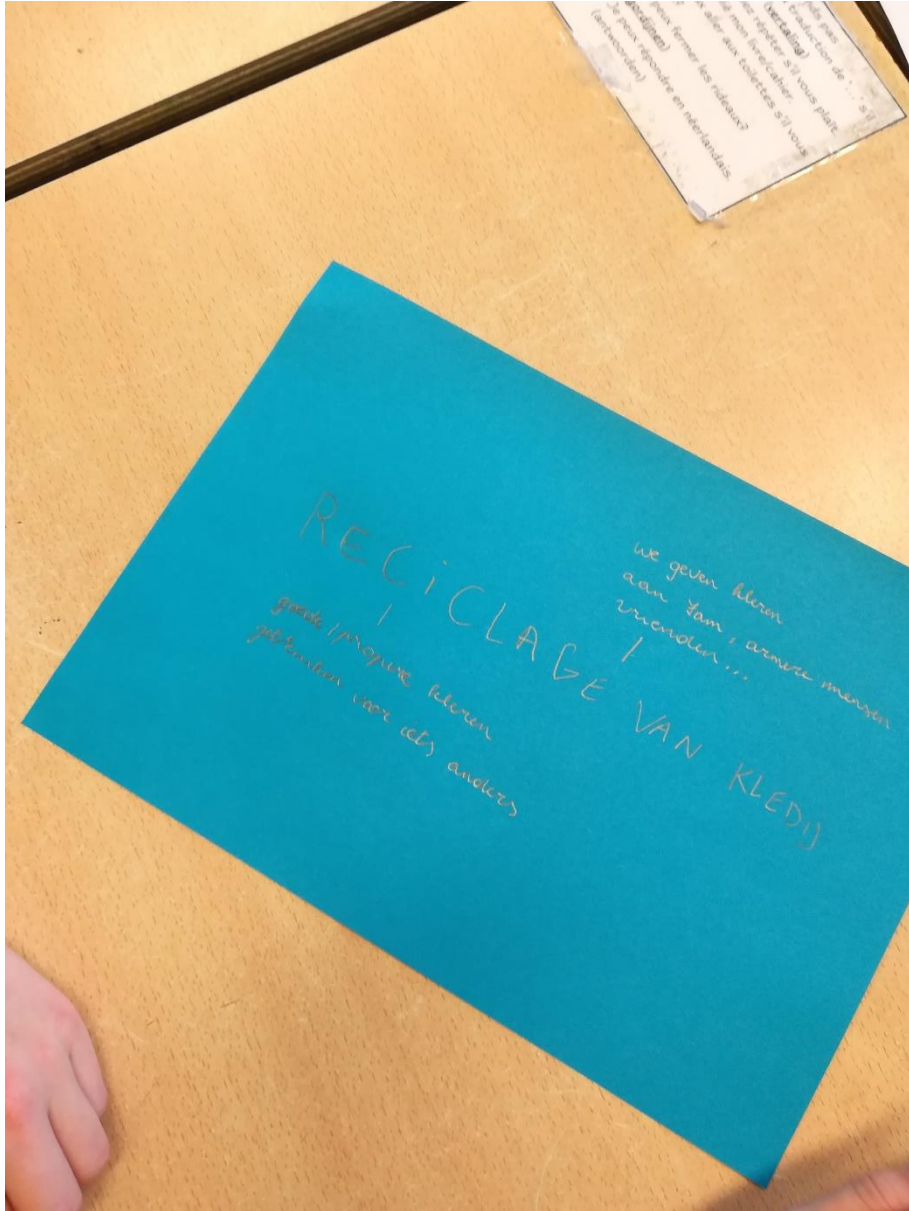 traduction de .... s'il
(vertaling)
répéter s'il vous plaît.
mon livre/cahier.
aller aux toilettes s'il vous
peux fermer les rideaux?
(gordijnen)
Je peux répondre en néerlandais
(antwoorden)
we geven kleren
aan fam, armere mensen
vrienden...
RECiCLAGE VAN KLEDIJ
goede/propere kleren
gebruiken voor iets anders